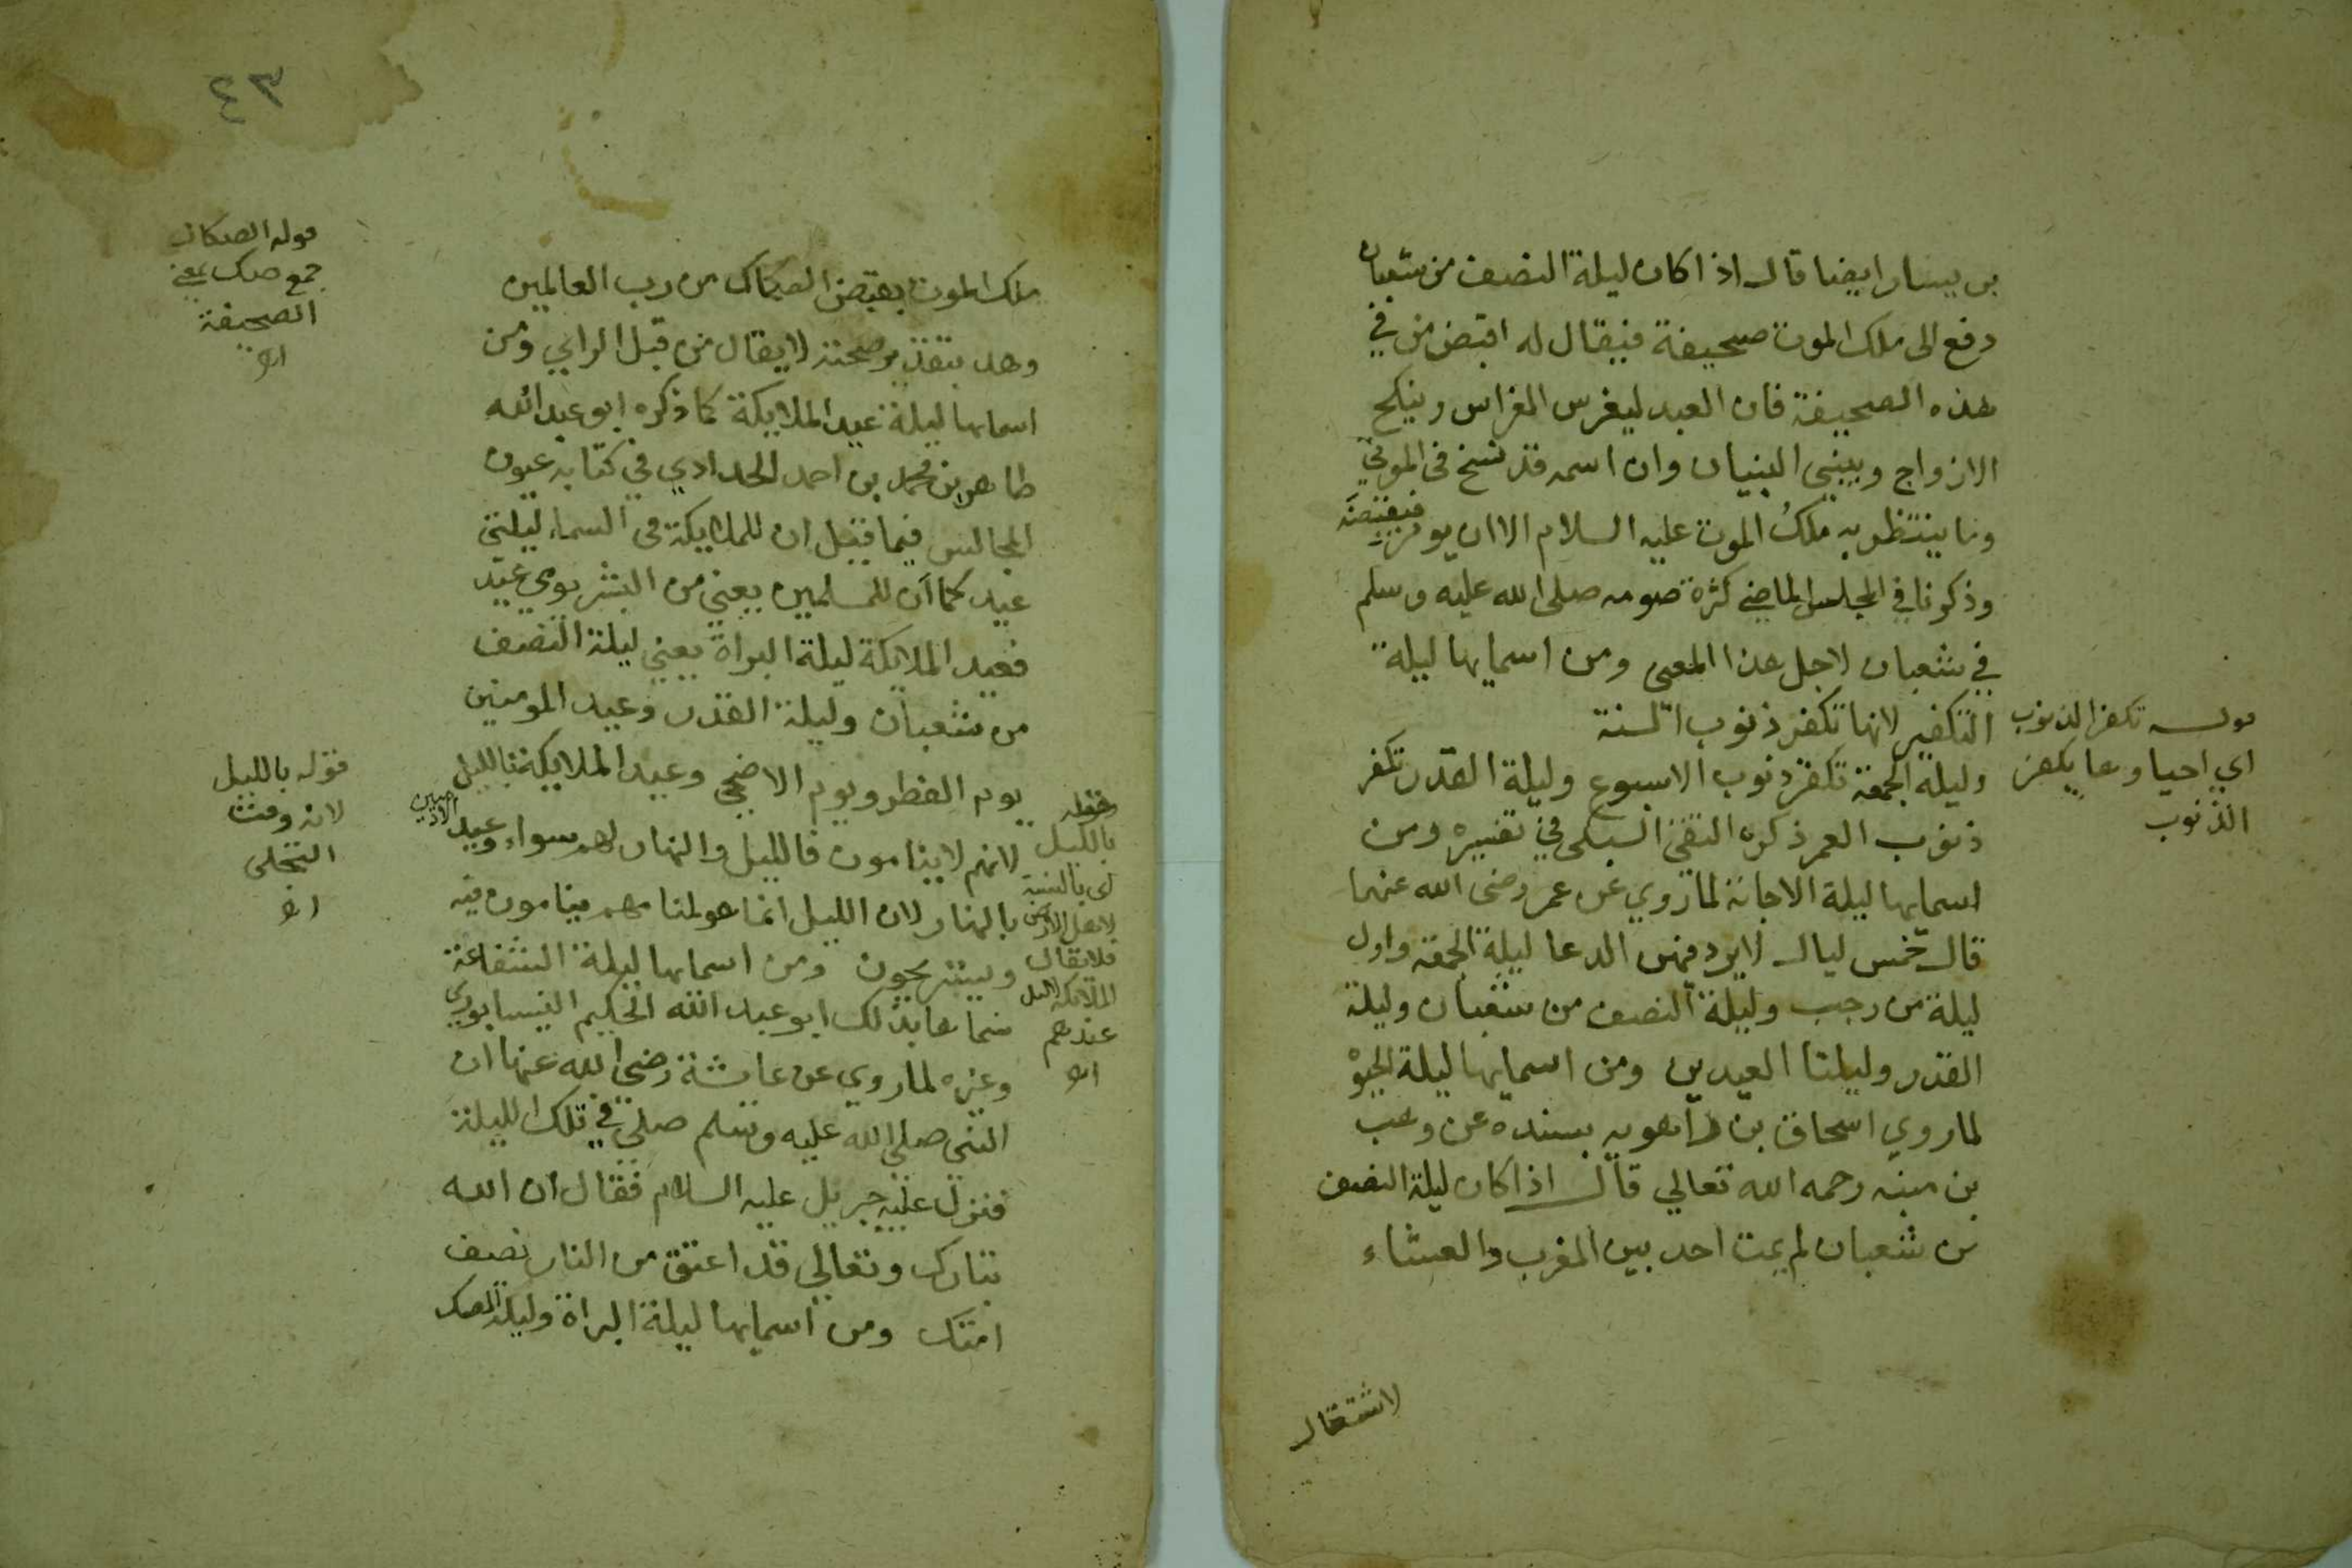 بن يسار ايضا قال اذا كان ليلة النصف من شعبان
دفع الى ملك الموت صحيفة فيقال له اقبض من في
هذه الصحيفة فان العبد ليغرس الغراس وينكح
الازواج ويبنى البنيان وان اسمه قد نسخ في الموتي
وما ينتظر به ملك الموت عليه السلام الا ان يومر به فيقبضه
وذكرنا في المجلس الماضي كثرة صومه صلى الله عليه وسلم
في شعبان لاجل هذا المعنى ومن اسمايها ليلة
التكفير لانها تكفر ذنوب السنة
وليلة الجمعة تكفر ذنوب الاسبوع وليلة القدر تكفر
ذنوب العمر ذكره التقي السبكي في تفسيره ومن
اسمايها ليلة الاجابة لما روي عن عمر رضى الله عنهما
قال خمس ليال لا يرد فيهن الدعا ليلة الجمعة واول
ليلة من رجب وليلة النصف من شعبان وليلة
القدر وليلتا العيدين ومن اسمايها ليلة الحيوة
لما روي اسحاق بن راهويه بسنده عن وهب
بن منبه رحمه الله تعالي قال اذا كان ليلة النصف
من شعبان لم يمت احد بين المغرب والعشاء
لاشتغال
قوله تكفر الذنوب
اي احيا وها يكفر
الذنوب
٤٣
ملك الموت بقبض الصكاك من رب العالمين
وهل بتقدير صحته لا يقال من قبل الراي ومن
اسمايها ليلة عيد الملايكة كما ذكره ابو عبد الله
طاهر بن محمد بن احمد الحدادي في كتابه عيون
المجالس فيما قيل ان للملايكة في السماء ليلتي
عيد كما ان للمسلمين يعني من البشر يومي عيد
فعيد الملايكة ليلة البراة يعني ليلة النصف
من شعبان وليلة القدر وعيد المومنين
يوم الفطر ويوم الاضحي وعيد الملايكة بالليل
لانهم لا ينامون فالليل والنهار لهم سواء وعيد الادميين
بالنهار لان الليل انما هو لمنامهم ينامون فيه
ويستريحون ومن اسمايها ليلة الشفاعة
سماها بذلك ابو عبد الله الحكيم النيسابوري
وغيره لما روي عن عايشة رضي الله عنها ان
النبي صلي الله عليه وسلم صلي في تلك الليلة
فنزل عليه جبريل عليه السلام فقال ان الله
تبارك وتعالي قد اعتق من النار نصف
امتك ومن اسمايها ليلة البراة وليلة الصك
قوله الصكاك
جمع صك بمعني
الصحيفة
اه
قوله بالليل
لانه وقت
التجلى
اه
بالليل
اى بالنسبة
لاهل الارض
فلا يقال
الملايكة لا ليل
عندهم
اه